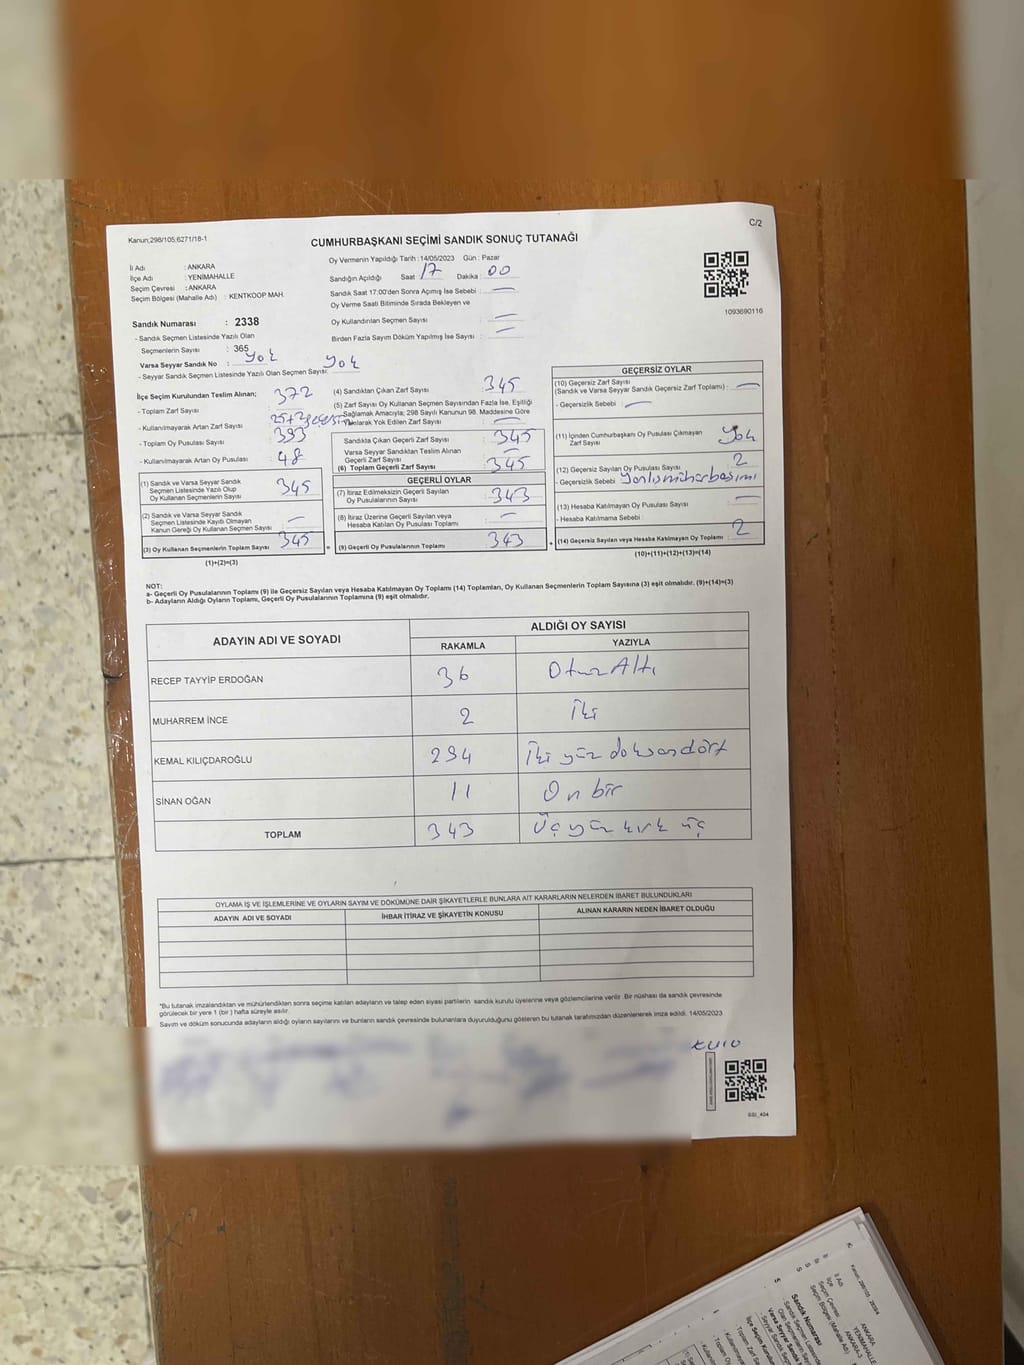 C/2
Kanun;298/105;6271/18-1
CUMHURBAŞKANI SEÇİMİ SANDIK SONUÇ TUTANAĞI
İl Adı : ANKARA
İlçe Adı : YENİMAHALLE
Seçim Çevresi : ANKARA
Seçim Bölgesi (Mahalle Adı) : KENTKOOP MAH.
Sandık Numarası : 2338
- Sandık Seçmen Listesinde Yazılı Olan
Seçmenlerin Sayısı : 365
Varsa Seyyar Sandık No : Yok
- Seyyar Sandık Seçmen Listesinde Yazılı Olan Seçmen Sayısı: Yok
Oy Vermenin Yapıldığı Tarih : 14/05/2023 Gün : Pazar
Sandığın Açıldığı Saat : 17 Dakika : 00
Sandık Saat 17:00'den Sonra Açılmış İse Sebebi : —
Oy Verme Saati Bitiminde Sırada Bekleyen ve
Oy Kullandırılan Seçmen Sayısı : —
Birden Fazla Sayım Döküm Yapılmış İse Sayısı : —
1093690116
İlçe Seçim Kurulundan Teslim Alınan;
- Toplam Zarf Sayısı : 372
- Kullanılmayarak Artan Zarf Sayısı : 25+2
- Toplam Oy Pusulası Sayısı : 393
- Kullanılmayarak Artan Oy Pusulası : 48
(1) Sandık ve Varsa Seyyar Sandık
Seçmen Listesinde Yazılı Olup
Oy Kullanan Seçmenlerin Sayısı : 345
(2) Sandık ve Varsa Seyyar Sandık
Seçmen Listesinde Kayıtlı Olmayan
Kanun Gereği Oy Kullanan Seçmen Sayısı : —
(3) Oy Kullanan Seçmenlerin Toplam Sayısı : 345
(1)+(2)=(3)
(4) Sandıktan Çıkan Zarf Sayısı : 345
(5) Zarf Sayısı Oy Kullanan Seçmen Sayısından Fazla İse, Eşitliği
Sağlamak Amacıyla; 298 Sayılı Kanunun 98. Maddesine Göre
Yakılarak Yok Edilen Zarf Sayısı : —
Sandıkta Çıkan Geçerli Zarf Sayısı : 345
Varsa Seyyar Sandıktan Teslim Alınan
Geçerli Zarf Sayısı : —
(6) Toplam Geçerli Zarf Sayısı : 345
GEÇERLİ OYLAR
(7) İtiraz Edilmeksizin Geçerli Sayılan
Oy Pusulalarının Sayısı : 343
(8) İtiraz Üzerine Geçerli Sayılan veya
Hesaba Katılan Oy Pusulası Toplamı : —
= (9) Geçerli Oy Pusulalarının Toplamı : 343
GEÇERSİZ OYLAR
(10) Geçersiz Zarf Sayısı
(Sandık ve Varsa Seyyar Sandık Geçersiz Zarf Toplamı) : —
- Geçersizlik Sebebi : —
(11) İçinden Cumhurbaşkanı Oy Pusulası Çıkmayan
Zarf Sayısı : Yok
(12) Geçersiz Sayılan Oy Pusulası Sayısı : 2
- Geçersizlik Sebebi : Yanlış mühür basımı
(13) Hesaba Katılmayan Oy Pusulası Sayısı : —
- Hesaba Katılmama Sebebi :
+ (14) Geçersiz Sayılan veya Hesaba Katılmayan Oy Toplamı : 2
(10)+(11)+(12)+(13)=(14)
NOT:
a- Geçerli Oy Pusulalarının Toplamı (9) ile Geçersiz Sayılan veya Hesaba Katılmayan Oy Toplamı (14) Toplamları, Oy Kullanan Seçmenlerin Toplam Sayısına (3) eşit olmalıdır. (9)+(14)=(3)
b- Adayların Aldığı Oyların Toplamı, Geçerli Oy Pusulalarının Toplamına (9) eşit olmalıdır.
ADAYIN ADI VE SOYADI ALDIĞI OY SAYISI
RAKAMLA YAZIYLA
RECEP TAYYİP ERDOĞAN 36 Otuz Altı
MUHARREM İNCE 2 İki
KEMAL KILIÇDAROĞLU 294 İki yüz doksandört
SİNAN OĞAN 11 On bir
TOPLAM 343 Üç yüz kırk üç
OYLAMA İŞ VE İŞLEMLERİNE VE OYLARIN SAYIM VE DÖKÜMÜNE DAİR ŞİKAYETLERLE BUNLARA AİT KARARLARIN NELERDEN İBARET BULUNDUKLARI
ADAYIN ADI VE SOYADI İHBAR İTİRAZ VE ŞİKAYETİN KONUSU ALINAN KARARIN NEDEN İBARET OLDUĞU
*Bu tutanak imzalandıktan ve mühürlendikten sonra seçime katılan adayların ve talep eden siyasi partilerin sandık kurulu üyelerine veya gözlemcilerine verilir. Bir nüshası da sandık çevresinde
görülecek bir yere 1 (bir) hafta süreyle asılır.
Sayım ve döküm sonucunda adayların aldığı oyların sayılarını ve bunların sandık çevresinde bulunanlara duyurulduğunu gösteren bu tutanak tarafımızdan düzenlenerek imza edildi. 14/05/2023
Kanun; 298/105
İl Adı ANKARA
İlçe Adı
Seçim Çevresi ANKARA-3
Seçim Bölgesi (Mahalle Adı)
Sandık Numarası